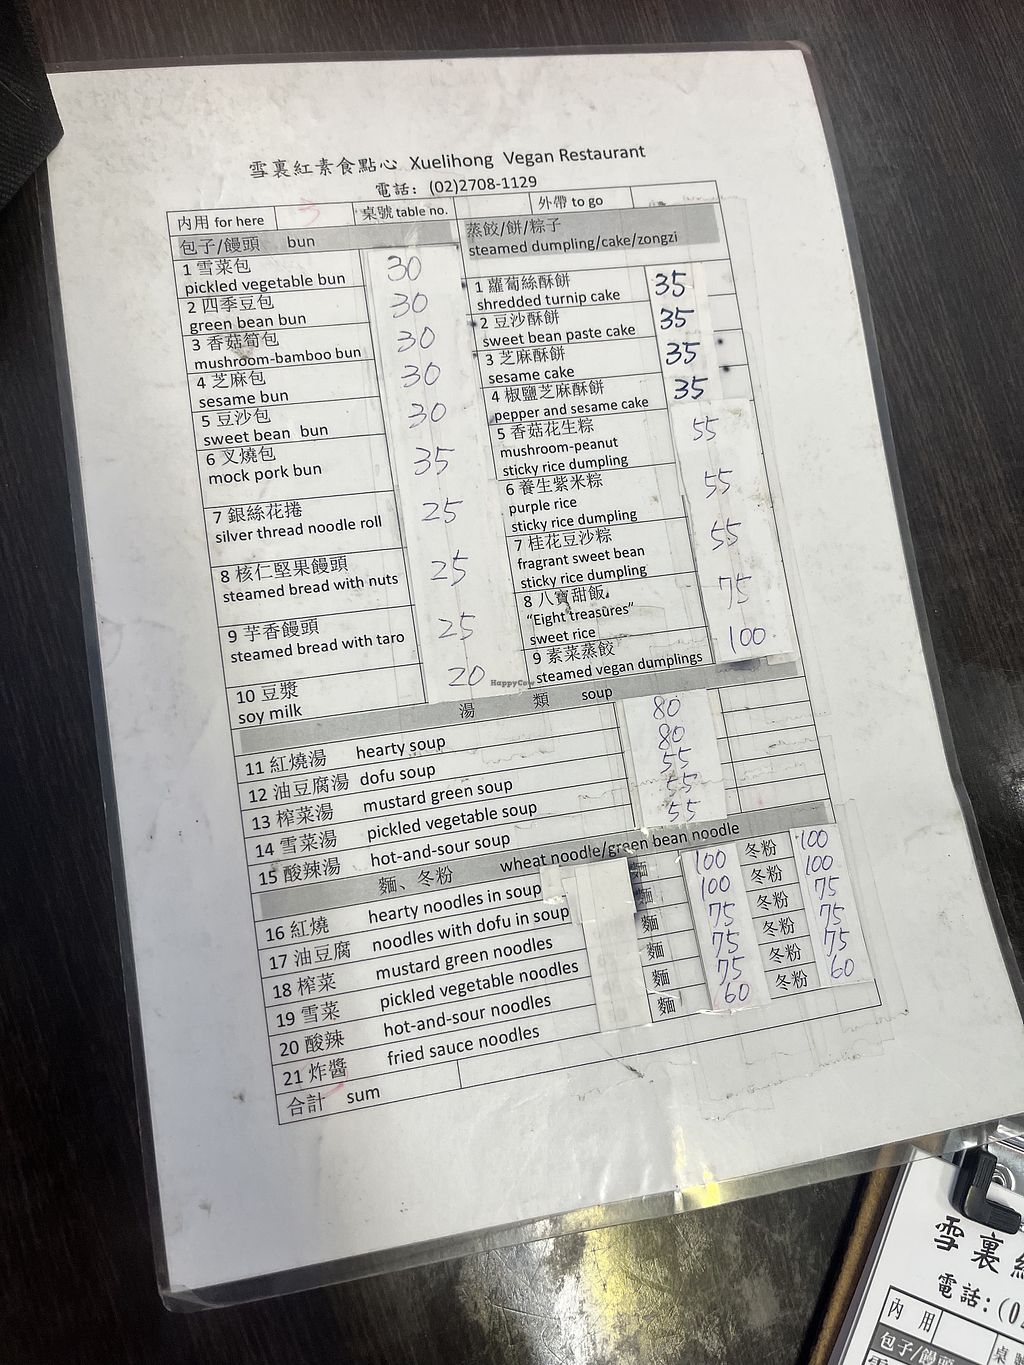 雪裏紅素食點心 Xuelihong Vegan Restaurant
電話: (02)2708-1129
內用 for here 桌號 table no. 外帶 to go
包子/饅頭 bun
1 雪菜包 30
pickled vegetable bun
2 四季豆包 30
green bean bun
3 香菇筍包 30
mushroom-bamboo bun
4 芝麻包 30
sesame bun
5 豆沙包 30
sweet bean bun
6 叉燒包 35
mock pork bun
7 銀絲花捲 25
silver thread noodle roll
8 核仁堅果饅頭 25
steamed bread with nuts
9 芋香饅頭 25
steamed bread with taro
10 豆漿 20
soy milk
蒸餃/餅/粽子
steamed dumpling/cake/zongzi
1 蘿蔔絲酥餅 35
shredded turnip cake
2 豆沙酥餅 35
sweet bean paste cake
3 芝麻酥餅 35
sesame cake
4 椒鹽芝麻酥餅 35
pepper and sesame cake
5 香菇花生粽 55
mushroom-peanut
sticky rice dumpling
6 養生紫米粽 55
purple rice
sticky rice dumpling
7 桂花豆沙粽 55
fragrant sweet bean
sticky rice dumpling
8 八寶甜飯 75
"Eight treasures"
sweet rice
9 素菜蒸餃 100
steamed vegan dumplings
HappyCow
湯 類 soup
11 紅燒湯 hearty soup 80
12 油豆腐湯 dofu soup 80
13 榨菜湯 mustard green soup 55
14 雪菜湯 pickled vegetable soup 55
15 酸辣湯 hot-and-sour soup 55
麵、冬粉 wheat noodle/green bean noodle
16 紅燒 hearty noodles in soup 麵 100 冬粉 100
17 油豆腐 noodles with dofu in soup 麵 100 冬粉 100
18 榨菜 mustard green noodles 麵 75 冬粉 75
19 雪菜 pickled vegetable noodles 麵 75 冬粉 75
20 酸辣 hot-and-sour noodles 麵 75 冬粉 75
21 炸醬 fried sauce noodles 麵 60 冬粉 60
合計 sum
雪裏
電話:(0
內用
包子/饅